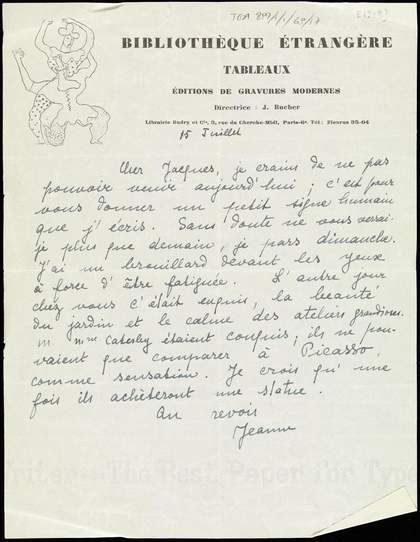 TGA 8
BIBLIOTHÈQUE ÉTRANGÈRE
TABLEAUX
ÉDITIONS DE GRAVURES MODERNES
Directrice : J. Bucher
Librairie Budry et Cie, 3, rue du Cherche-Midi, Paris-6e Tél: Fleurus 35-64
15 Juillet
Cher Jacques, je crains de ne pas
pouvoir venir aujourd'hui ; c'est pour
vous donner un petit signe humain
que j'écris. Sans doute ne vous verrai-
je plus que demain, je pars dimanche.
J'ai un brouillard devant les yeux
à force d'être fatiguée. L'autre jour
chez vous c'était exquis, la beauté
du jardin et le calme des ateliers grandioses.
M. Mme étaient conquis ; ils ne pou-
vaient que comparer à Picasso,
comme sensation. Je crois qu'une
fois ils achèteront une statue.
Au revoir
Jeanne
Writer - The Best Paper for Type